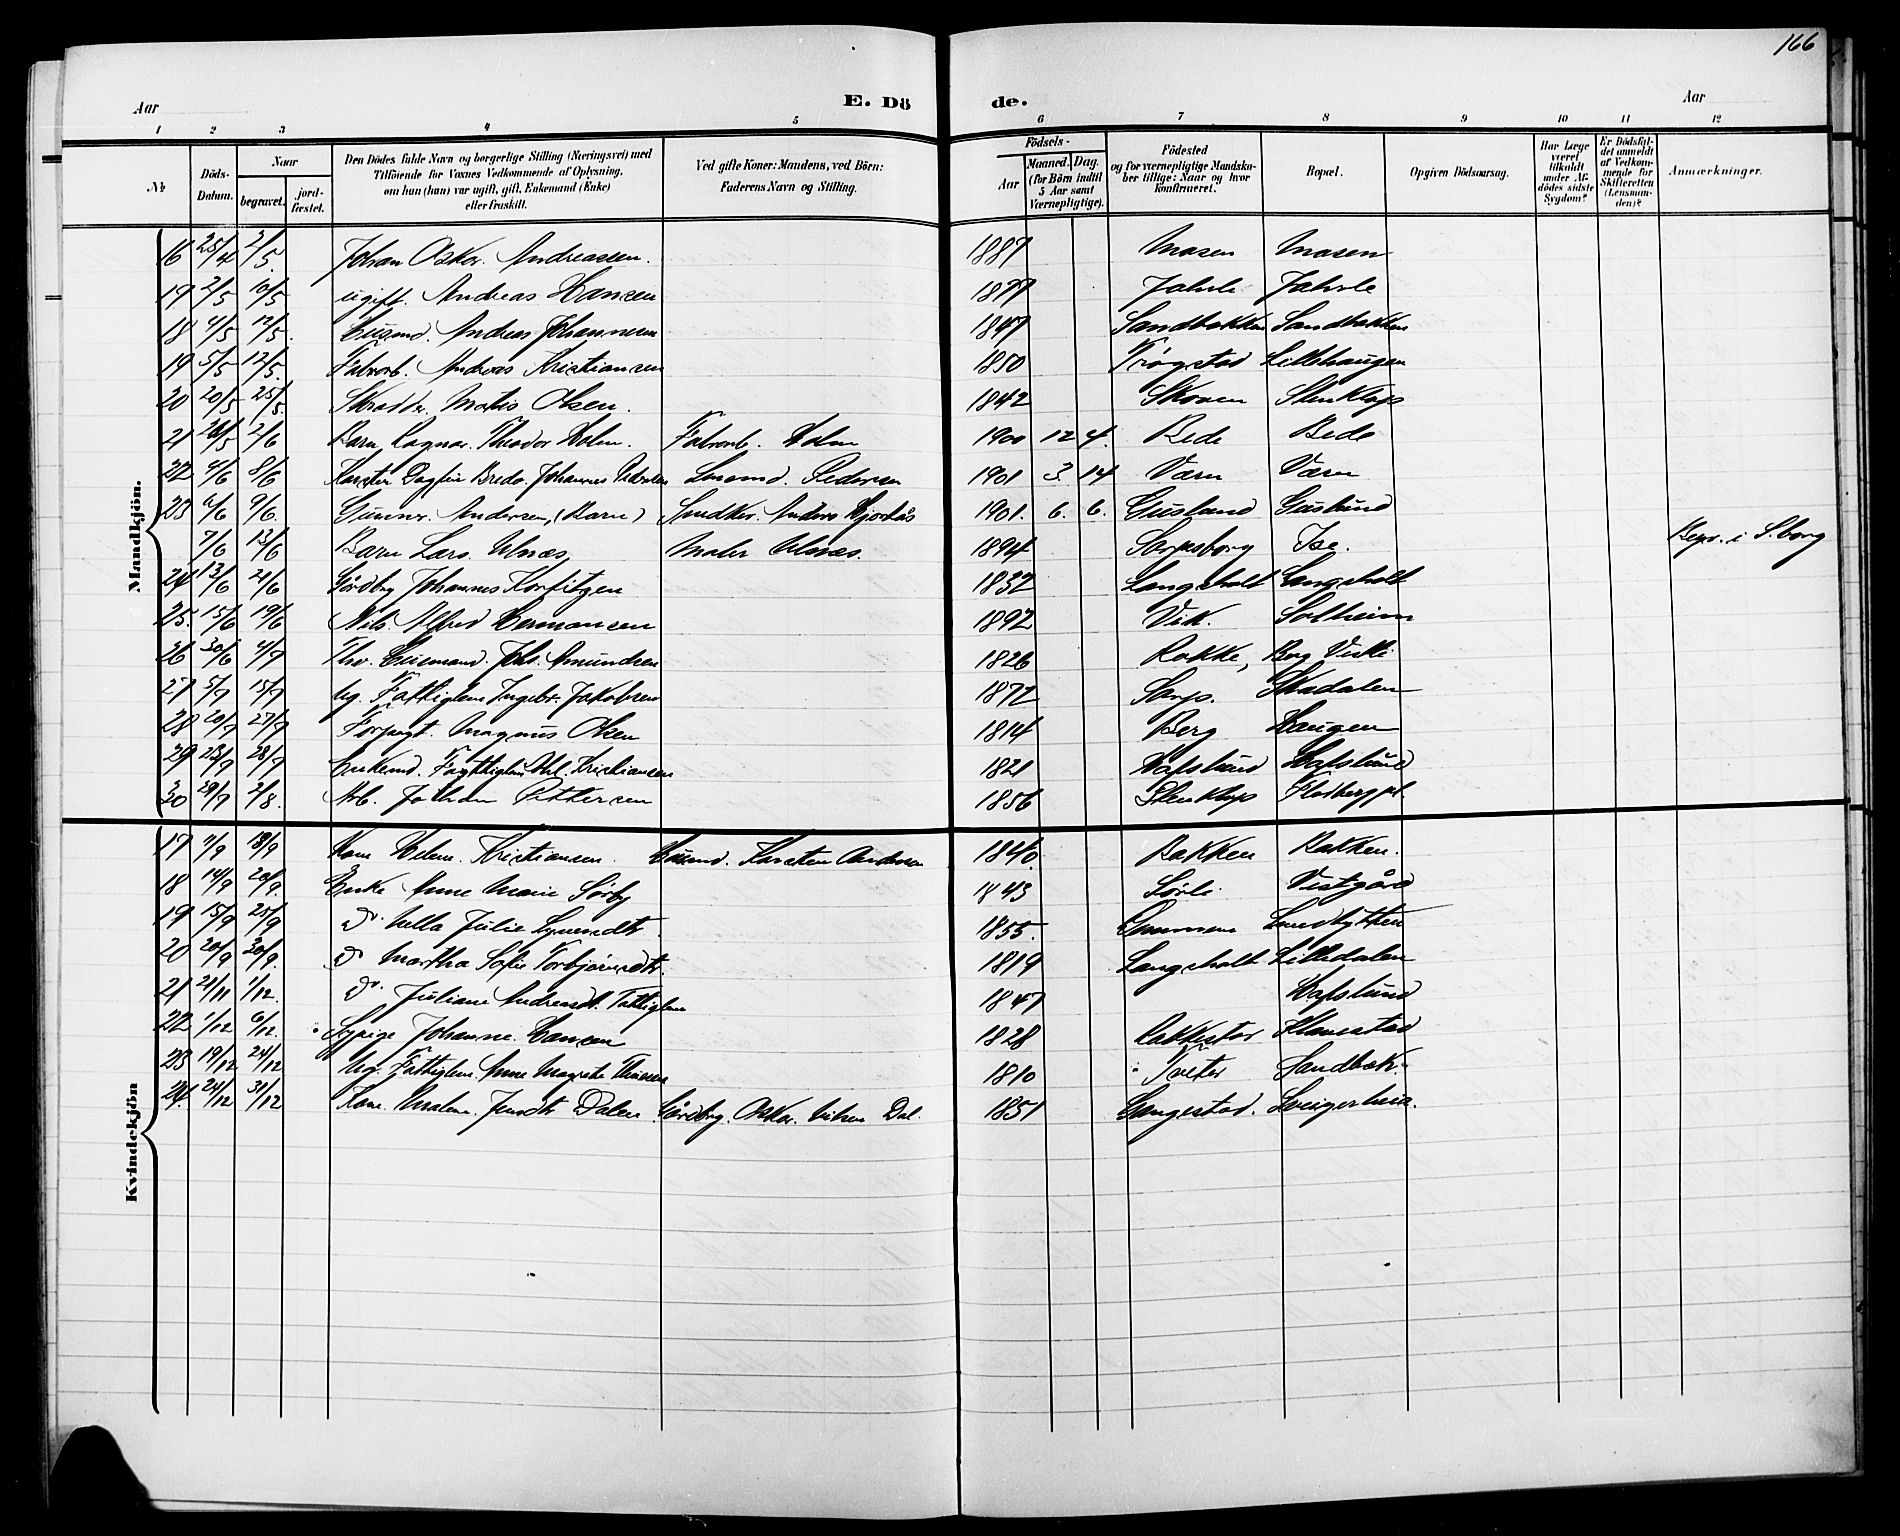 166
Aar E. Dö de. Aar
1 2 3 4 5 6 7 8 9 10 11 12
№
Döds-Datum.
Naar
begravet.
jord-fæstet.
Den Dödes fulde Navn og borgerlige Stilling (Næringsvei) med
Tilföiende for Voxnes Vedkommende af Oplysning,
om han (hun) var ugift, gift, Enkemand (Enke)
eller fraskilt.
Ved gifte Koner: Mandens, ved Börn:
Faderens Navn og Stilling.
Födsels-
Aar
Maaned. Dag.
(for Börn indtil
5 Aar samt
Værnepligtige).
Födested
og for værnepligtige Mandska-
ber tillige: Naar og hvor
konfirmeret.
Bopæl.
Opgiven Dödsaarsag.
Har Læge
været
tilkaldt
under Af-
dödes sidste
Sygdom?
Er Dödsfal-
det anmeldt
af Vedkom-
mende for
Skifteretten
(Lensman-
den)?
Anmærkninger.
Mandkjön.
16 25/4 2/5. Johan Oskar. Andreassen. 1887 Mosen Mosen
17 2/5 10/5 ugift. Andreas Hansen 1877
18 4/5 12/5. Husmd. Andreas Johannesen 1847 Sandbakken Sandbakken
19 5/5 12/5. Fabrarb. Andreas Kristiansen 1850 Trøgstad Lillehaugen
20 20/5 25/5. Skrædder. Matis Olsen. 1842 Skoven
21 26/5 2/6 Barn Ragnar. Theodor Holm. Fabrarb. Holm 1900 12 4. Bede Bede
22 4/6 8/6 Karsten Dagfin Bredo. Johannes Pedersen Pedersen 1901 3. 14 Værn Værn
23 6/6 9/6. Gunnar. Andersen, (Barn) Snedker. Anders 1901. 6. 6. Guslund Guslund
7/6 13/6 Barn Lars. Ulnæs Maler Ulnæs. 1894 Sarpsborg Ise. Begr. i S.borg
24 13/6 21/6 Gårdbrg Johannes Korfitzen 1832 Langsholt Langsholt
25. 15/6 19/6 Nils. Alfred Hermansen 1892 Vik. Solheim
26 30/6 4/7 Fhv. Husmand. Johs. Amundsen 1826 Rokke, Berg
27 5/7 15/7 Ug. Fattiglem Ingebr. Jakobsen 1872 Sarps. Skadalen
28 20/7 27/7 Forpagt. Magnus Olsen 1814 Berg Haugen
29 23/7 28/7 Enkemd. Fattiglem Kristiansen 1821 Hafslund Hafslund
30 29/7 2/8. Arb. Johan Pettersen 1856
Kvindekjön
17 11/9 18/9 Kone Helene. Kristiansen. Husmd. Karsten Andersen 1840. Bakken Bakken.
18 14/9 20/9. Enke Anne Marie Sørby 1843 Sørli Vestgård
19 15/9 25/9 Do. Julie 1855.
20 20/9 30/9. Do Martha Sofie Torbjørnsdtr 1819 Langsholt Lilledalen
21 21/11 1/12. Do. Juliane Andreasdt. Fattiglem 1847 Hafslund
22 1/12 6/12 Sypige Johanne. Hansen 1828 Rakkestad Klavestad
23 19/12 24/12 Ug. Fattiglem. Anne Margrethe 1810 Tveter Sandbæk
24. 24/12 31/12 Kone. Malene. Jensdtr Dalen Gårdbrg. Oskar. Nilsen Dal. 1851